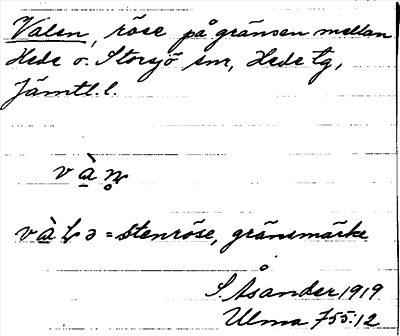 Valen, röse på gränsen mellan
Hede o. Storsjö sm, Hede tg,
Jämtl. l.
vàṇ̊
vàɫə = stenröse, gränsmärke
S. Åsander 1919
Ulma 755:12